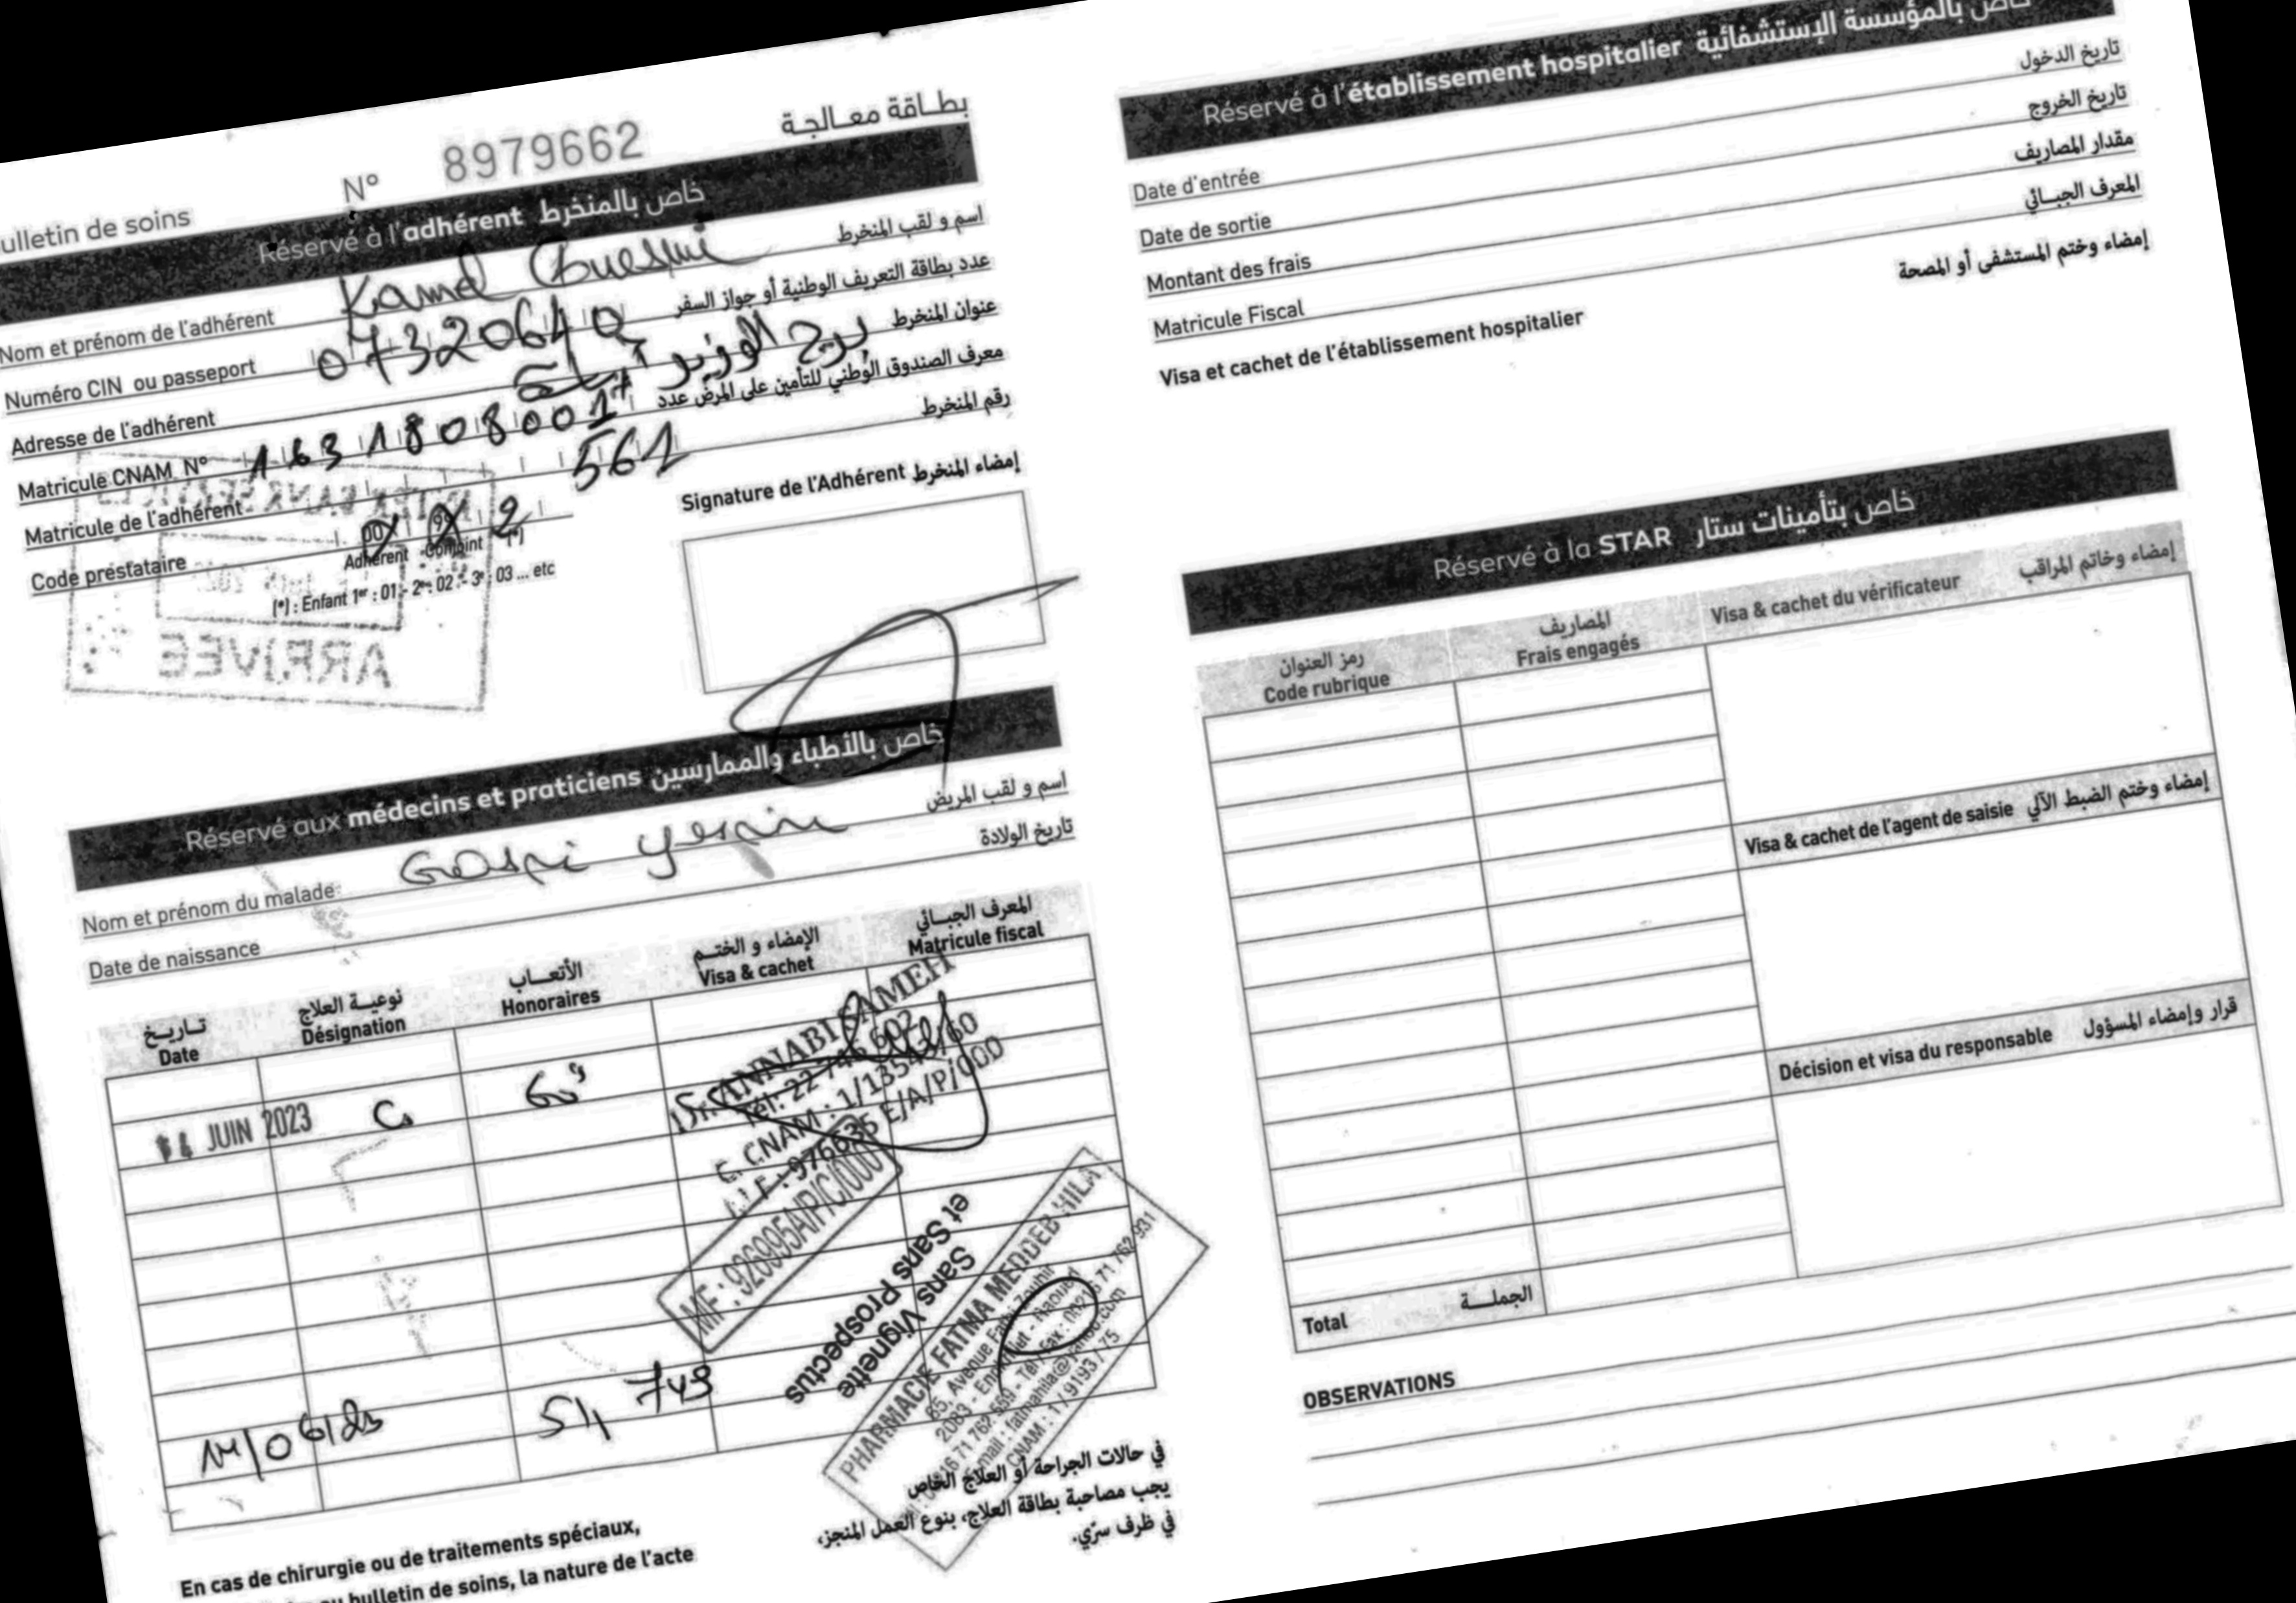 بطـاقة معـالجـة
N° 8979662
ulletin de soins
Réservé à l'adhérent خاص بالمنخرط
Nom et prénom de l'adhérent Kamel اسم و لقب المنخرط
Numéro CIN ou passeport 07320640 عدد بطاقة التعريف الوطنية أو جواز السفر
Adresse de l'adhérent برج الوزير أريانة عنوان المنخرط
Matricule CNAM N° 163180800 معرف الصندوق الوطني للتأمين على المرض عدد
Matricule de l'adhérent 561 رقم المنخرط
Code prestataire 00 99 2
Adhérent Conjoint (*)
(*) : Enfant 1er : 01 - 2e : 02 - 3e : 03 ... etc
ARRIVEE
Signature de l'Adhérent إمضاء المنخرط
Réservé aux médecins et praticiens خاص بالأطباء والممارسين
Nom et prénom du malade اسم و لقب المريض
Date de naissance تاريخ الولادة
تـاريـخ نوعيـة العلاج الأتعـاب الإمضاء و الختـم المعرف الجبـائي
Date Désignation Honoraires Visa & cachet Matricule fiscal
14 JUIN 2023 Cs
Dr. ANNABI SAMEH
Tél: 22 746 602
C. CNAM : 1/13543/60
M.F : 976635 E/A/P/000
MF : 926995A/P/C/000
Sans Vignette
et Sans Prospectus
PHARMACIE FATMA MEDDEB HILA
65, Avenue Fathi Zouhir
2083 - Ennkhilet - Raoued
71 762 559 - Tél/Fax : 00216 71 762 931
E-mail : fatmahila@yahoo.com
CNAM : 1 / 9193 / 75
14/06/23 51,749
En cas de chirurgie ou de traitements spéciaux,
bulletin de soins, la nature de l'acte
في حالات الجراحة أو العلاج الخاص
يجب مصاحبة بطاقة العلاج، بنوع العمل المنجز،
في ظرف سرّي.
Réservé à l'établissement hospitalier خاص بالمؤسسة الإستشفائية
Date d'entrée تاريخ الدخول
Date de sortie تاريخ الخروج
Montant des frais مقدار المصاريف
Matricule Fiscal المعرف الجبـائي
Visa et cachet de l'établissement hospitalier إمضاء وختم المستشفى أو المصحة
Réservé à la STAR خاص بتأمينات ستار
رمز العنوان المصاريف
Code rubrique Frais engagés
Visa & cachet du vérificateur إمضاء وخاتم المراقب
Visa & cachet de l'agent de saisie إمضاء وختم الضبط الآلي
Décision et visa du responsable قرار وإمضاء المسؤول
Total الجملـــة
OBSERVATIONS